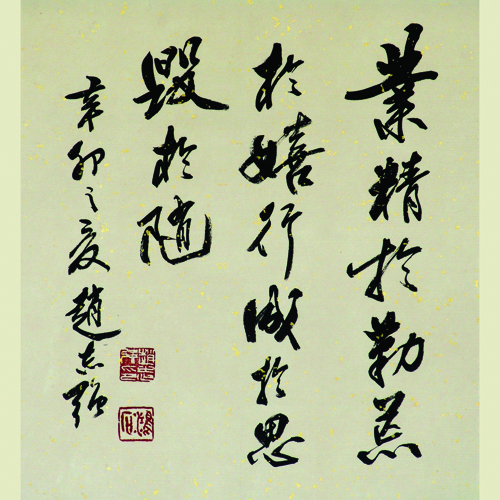 業精於勤荒
於嬉行成於思
毀於隨
辛卯之夏趙志